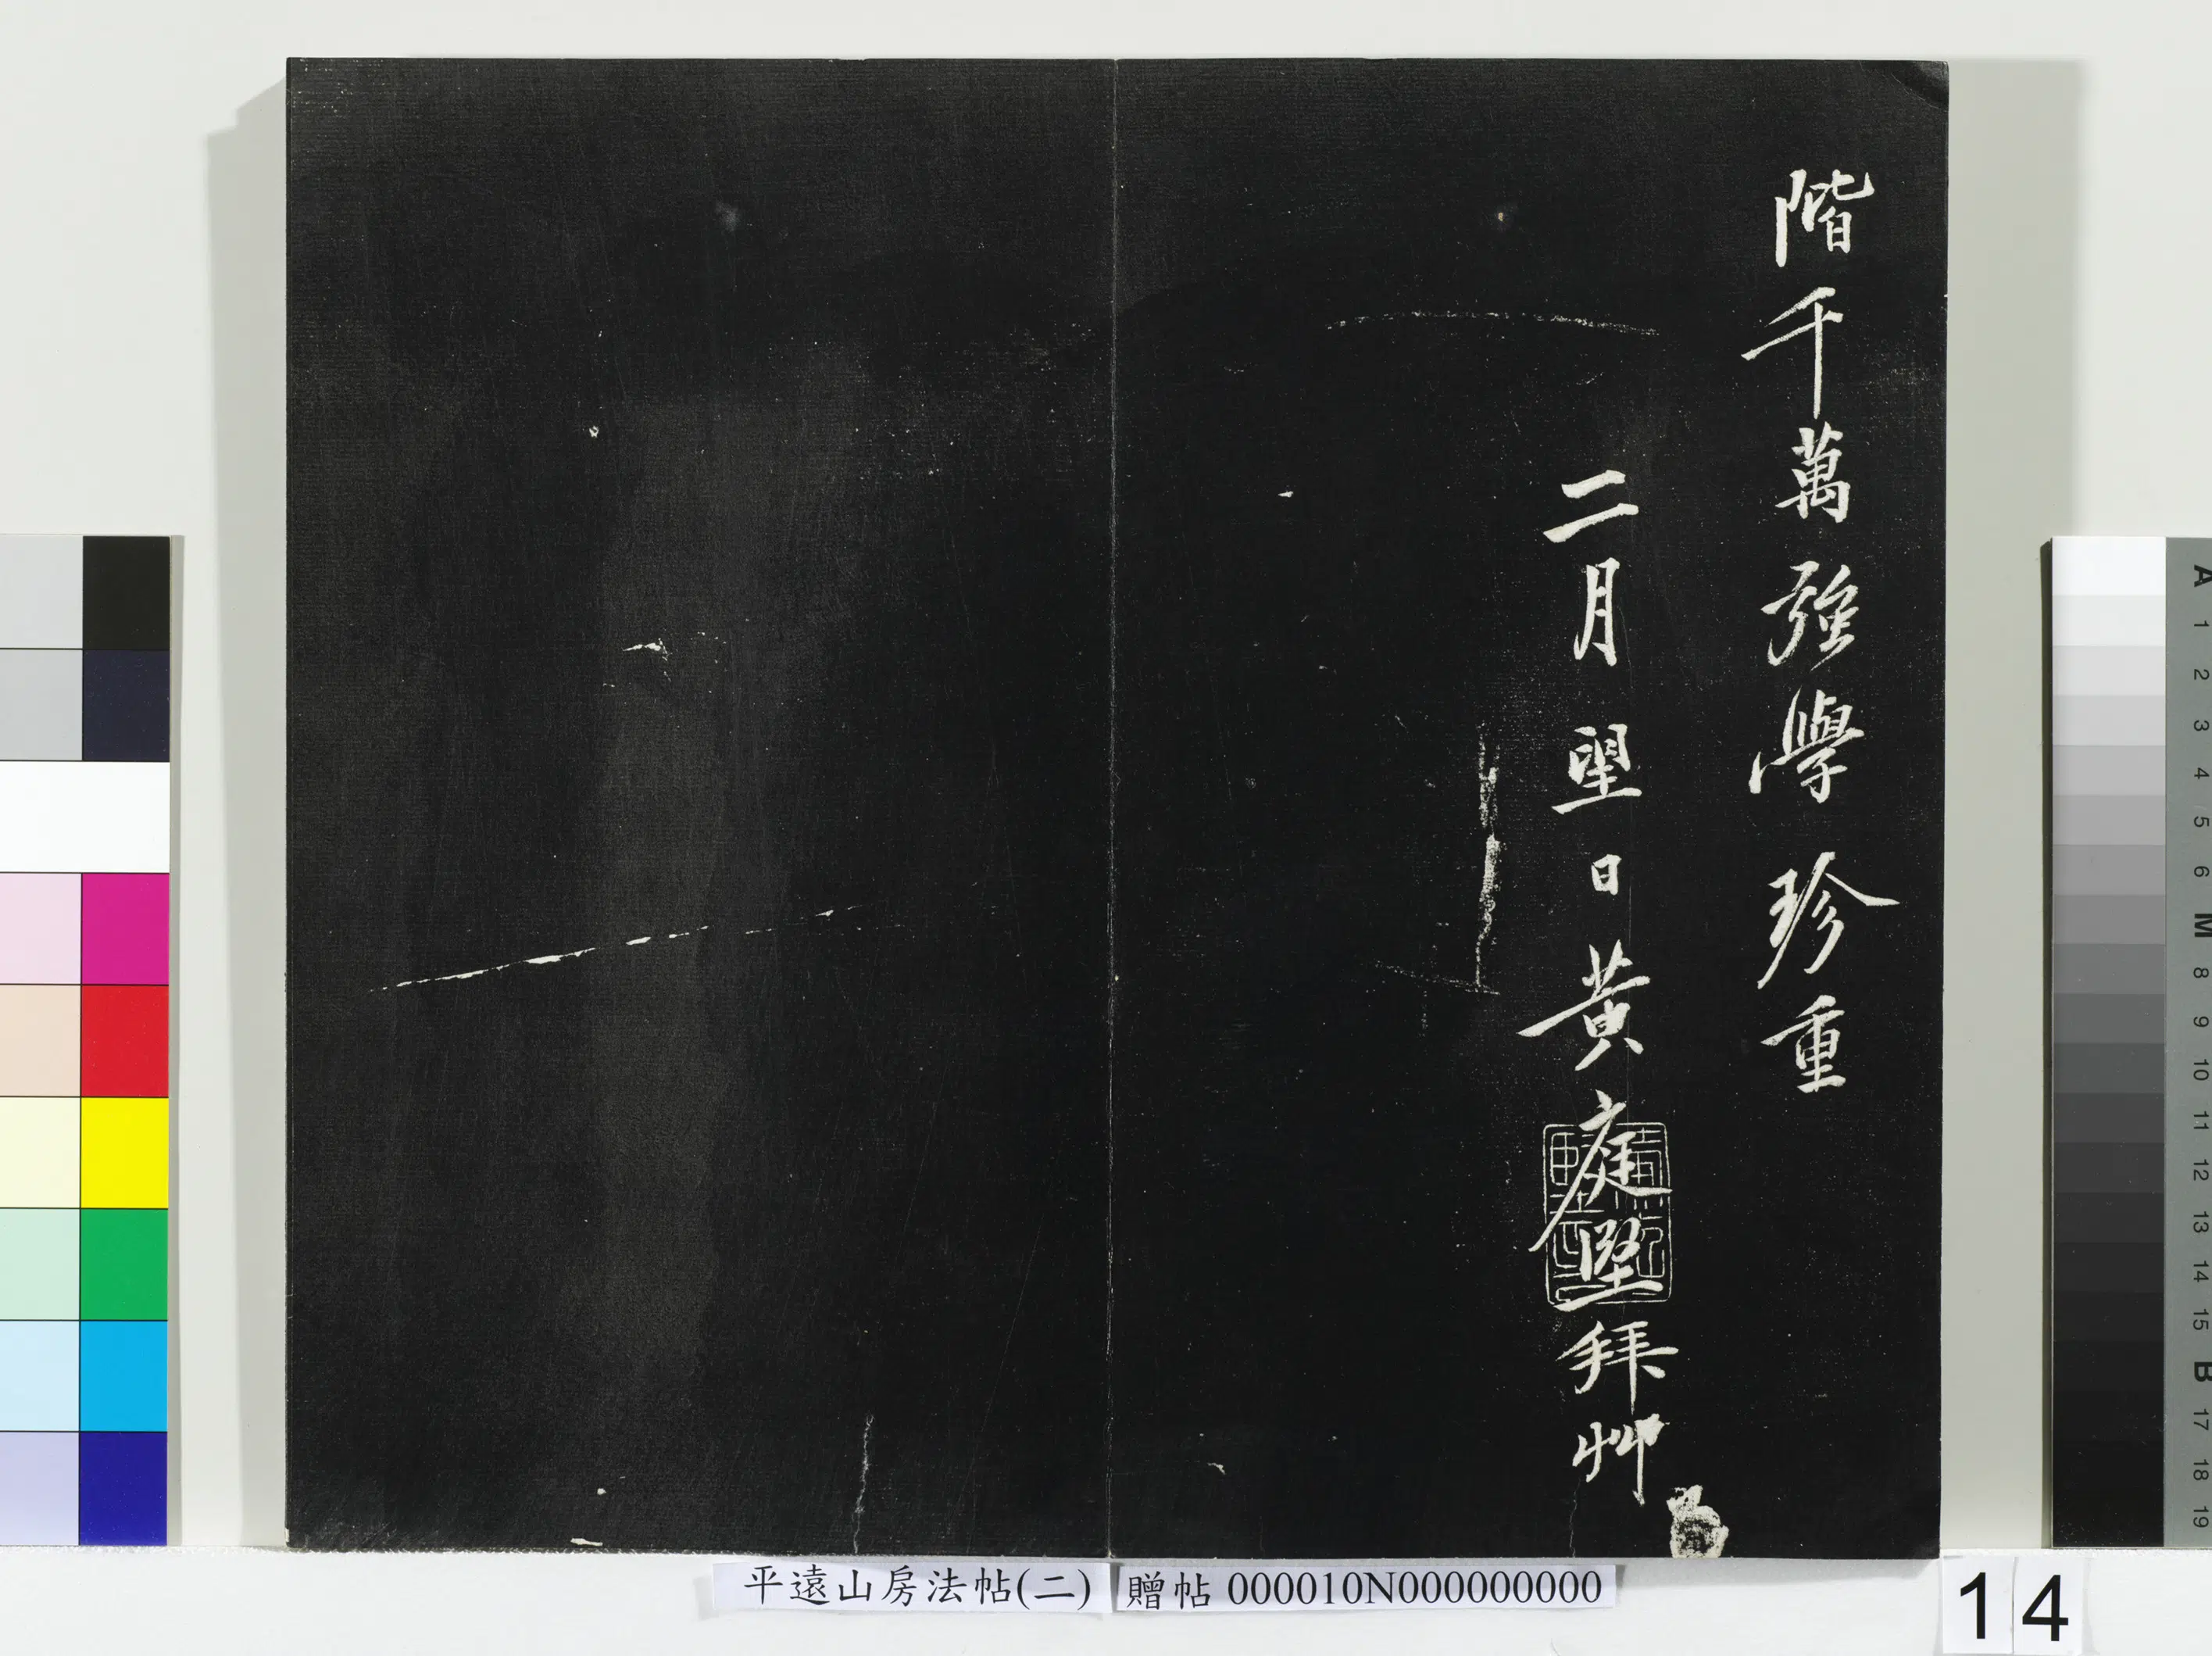 階千萬强學珍重
二月望日黃庭堅拜艸
平遠山房法帖(二) 贈帖 000010N000000000
14
A 1 2 3 4 5 6 M 8 9 10 11 12 13 14 15 B 17 18 19